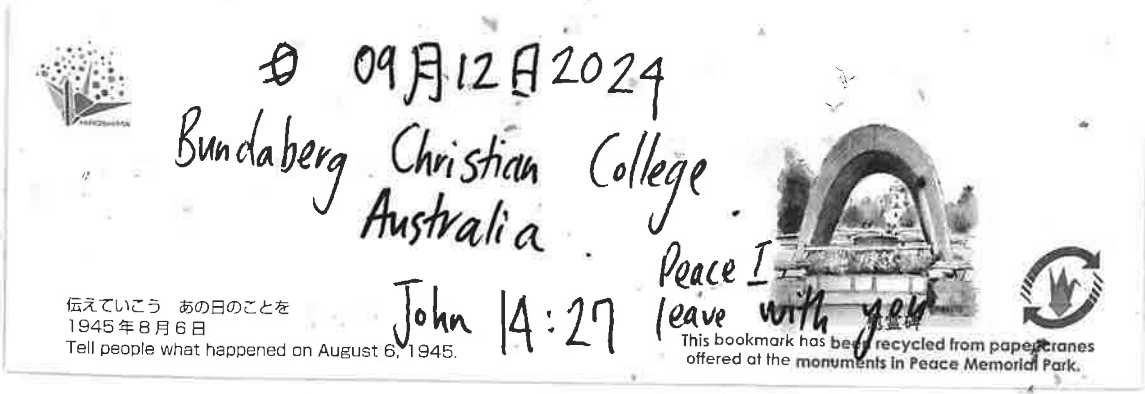 09月12日2024
Bundaberg Christian College
Australia
John 14:27
Peace I
leave with you
HIROSHIMA
伝えていこう あの日のことを
1945年8月6日
Tell people what happened on August 6, 1945.
This bookmark has been recycled from paper cranes
offered at the monuments in Peace Memorial Park.